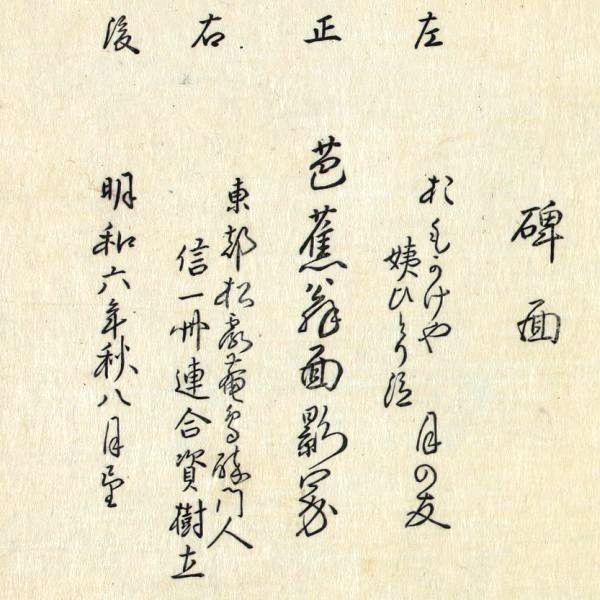 碑面
左
おもかけや
姨ひとり泣
月の友
正
芭蕉翁面影冢
右
東都松露菴鳥酔門人
信一州連合資樹立
後
明和六年秋八月望